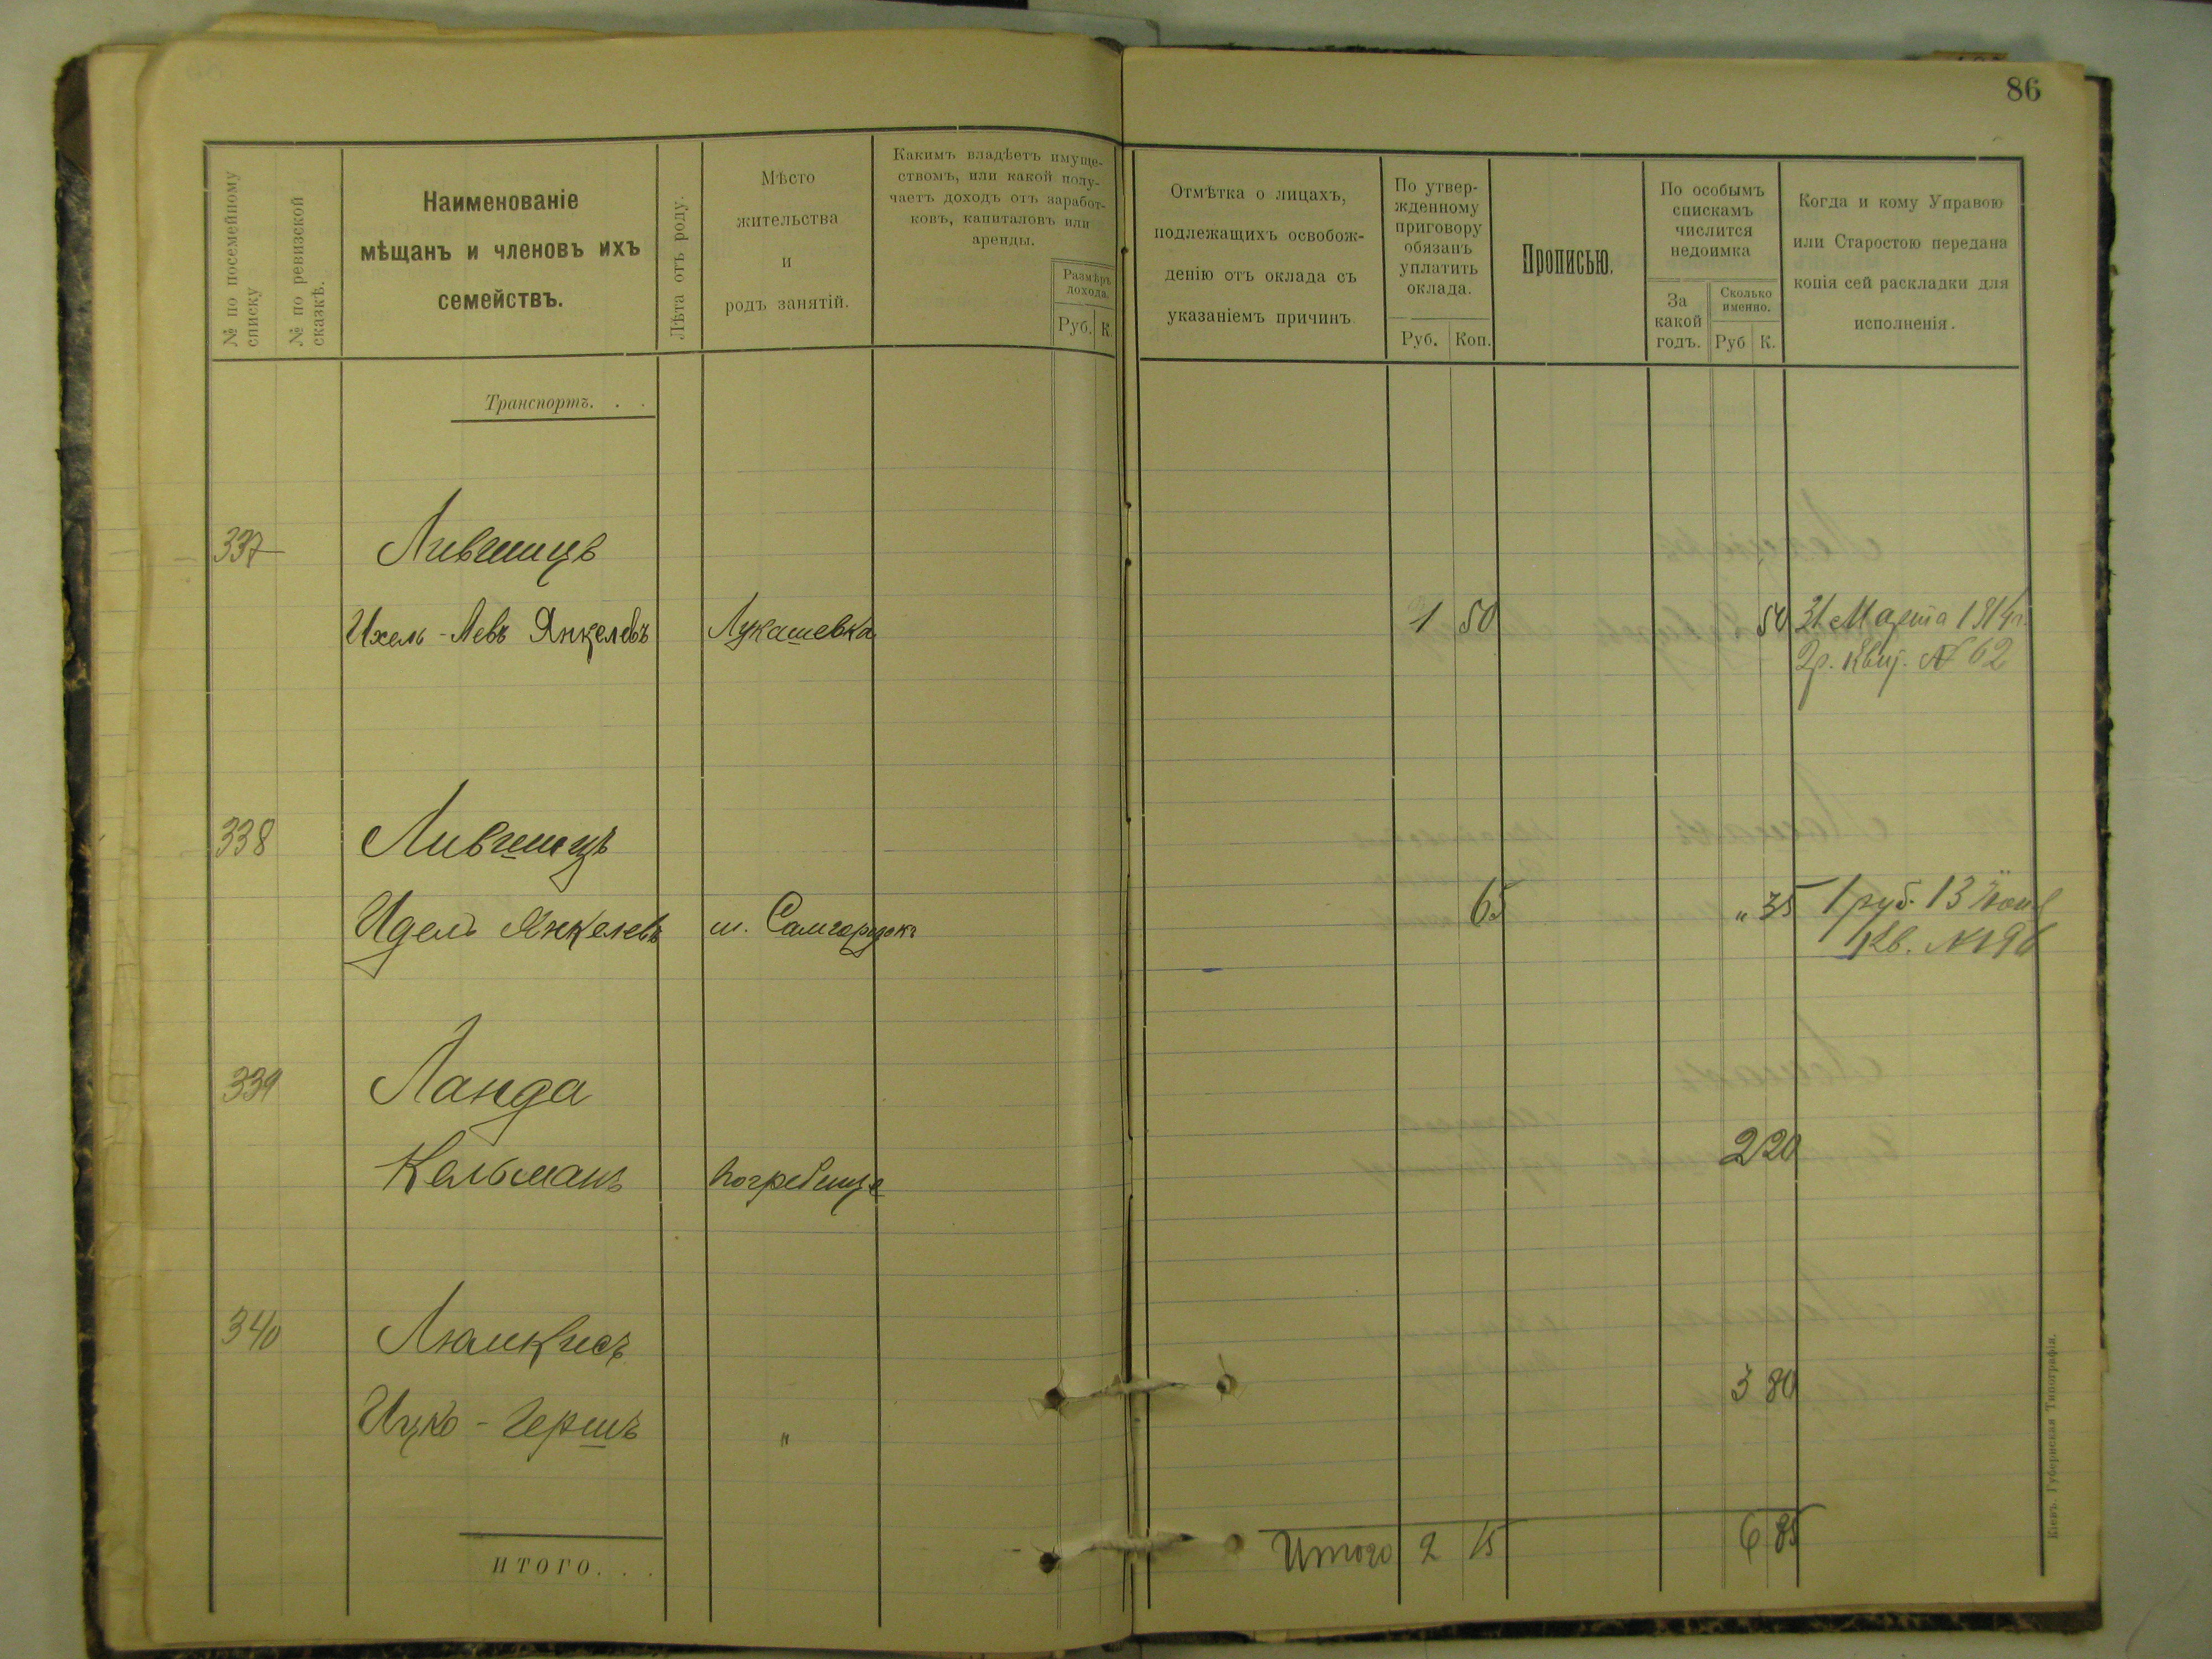 86
№ по посемейному
списку
№ по ревизской
сказкѣ.
Наименованіе
мѣщанъ и членовъ ихъ
семействъ.
Лѣта отъ роду.
Мѣсто
жительства
и
родъ занятій.
Какимъ владѣетъ имуще-
ствомъ, или какой полу-
чаетъ доходъ отъ заработ-
ковъ, капиталовъ или
аренды.
Размѣръ
дохода.
Руб. К.
Отмѣтка о лицахъ,
подлежащихъ освобож-
денію отъ оклада съ
указаніемъ причинъ
По утвер-
жденному
приговору
обязанъ
уплатить
оклада.
Руб. Коп.
Прописью.
По особымъ
спискамъ
числится
недоимка
За
какой
годъ.
Сколько
именно.
Руб К.
Когда и кому Управою
или Старостою передана
копія сей раскладки для
исполненія.
Транспортъ. . .
337 Лившицъ
Ихель-Левъ Янкелевъ Лукашевка 1 50 50 31 Марта 1914 г.
2 р. Квит. № 62
338 Лившицъ
Идель Янкелевъ м. Самгородокъ 65 „ 35 1 руб. 13 Іюня
Кв. № 196
339 Ланда
Кельманъ Погребище 2 20
340 Люмкисъ
Ицко-Гершъ „ 3 80
ИТОГО. . .
Итого 2 15 6 85
Кіевъ. Губернская Типографія.